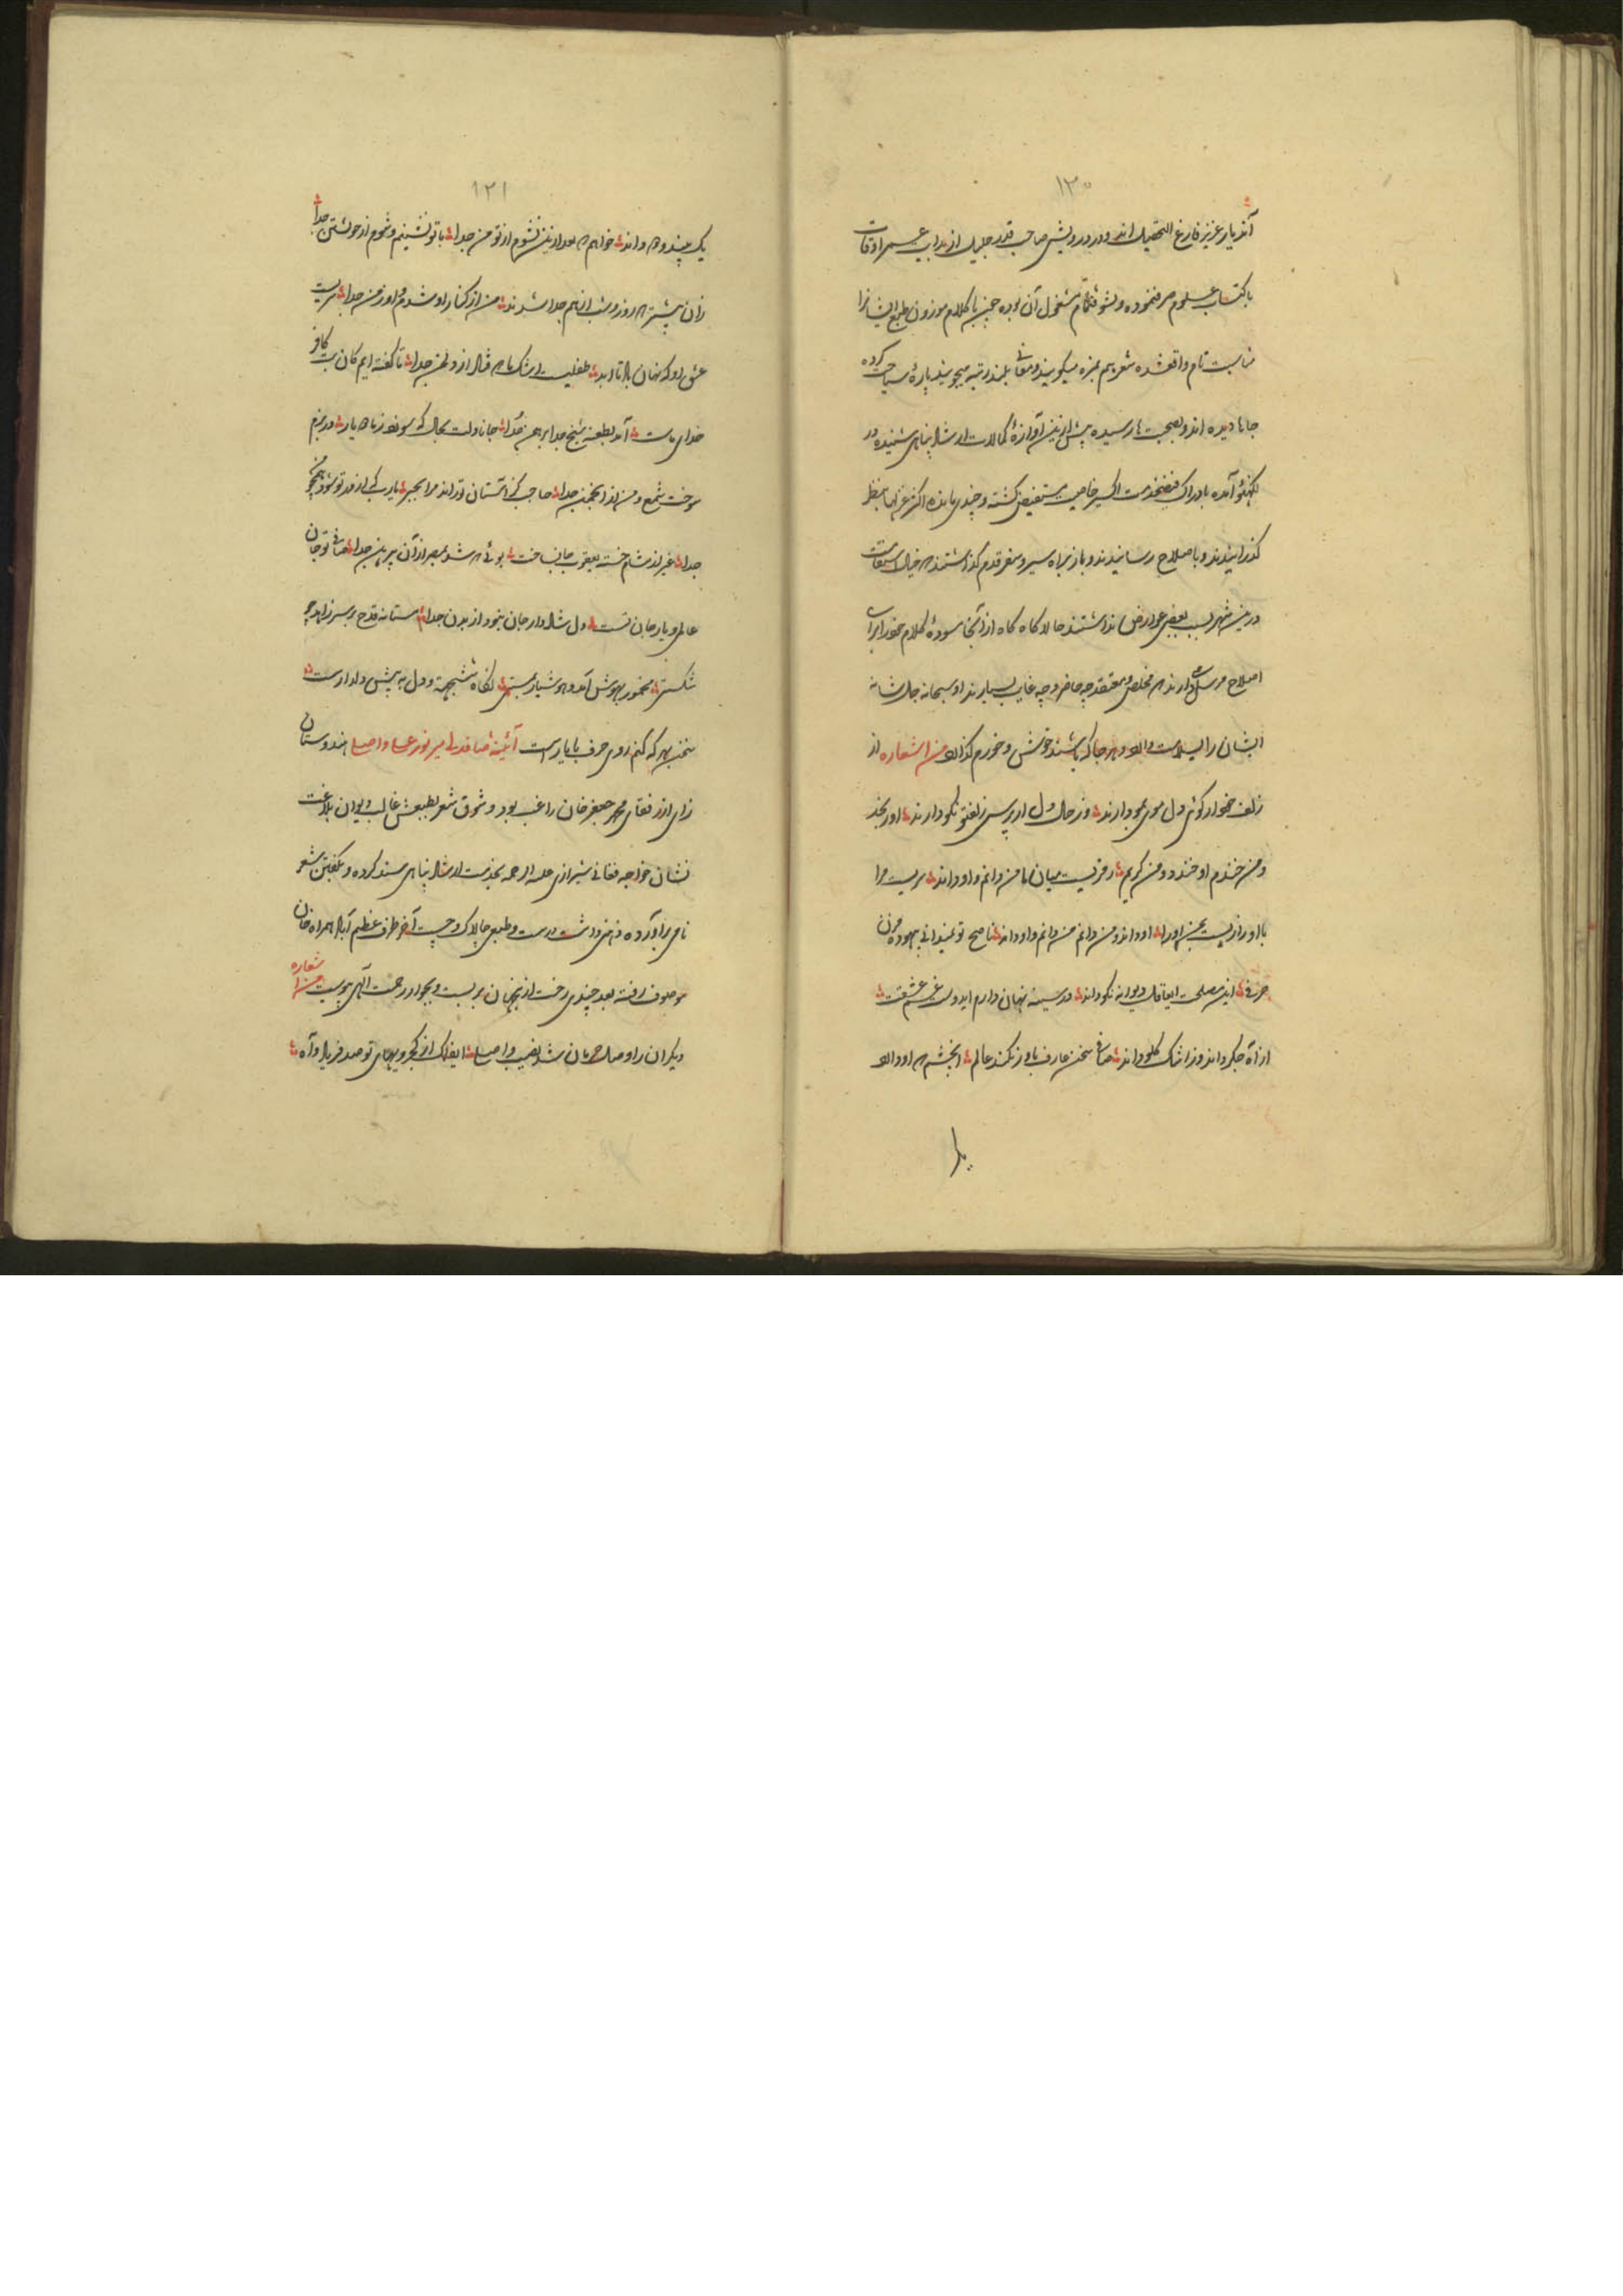 ١٢٠
آن یار عزیز فارغ التحصیل اند و در درویشی صاحب قدر جلیل از بدایت عمر اوقات
با کتساب علوم صرف نموده و بشوق تمام مشغول آن بوده چون با کلام موزون طبع ایشانرا
مناسبت تام واقع شده شعر هم بمزه میگویند و معانی بلند رتبه میجویند پاره سیاحت کرده
جاها دیده اند و بصحبت ها رسیده پیش ازین آوازهٔ کمالات ارشاد پناهی شنیده در
لکهنؤ آمده بادراک فیضخدمت اکسیر خاصیت مستفیض گشته و چندی مانده اکثر غزلها بنظر
گذرانیدند و باصلاح رسانیدند و باز براه سیر و سفر قدم گذاشتند که خیال استقامت
درین شهر بسبب بعضی عوارض نداشتند حالا گاه گاه از آنجا مسودهٔ کلام خود برای
اصلاح مرسل میدارند که مخلص و معتقد چه حاضر و چه غایب بسیارند او سبحانه جل شانه
ایشان را بسلامت دارد و هر جا که باشند خوش و خورم گذارد من اشعاره از
زلف خم دار کوئی دل موی بمو دارند وز حال دل ار پرسی زلفت نکو دارند او بخندد
و من خندم او خندد و من گریم رمزیست میان ما من دانم و او داند سریست مرا
با او رازیست بمن او را او داند و من دانم من دانم و او داند ناصح تو نمیدانی بیهوده مزن
حرفی این مصلحت ایعاقل دیوانه نکو داند در سینه نهان دارم ایدوست غم عشقت
از آه جگر داند وز اشک گلو داند صافی سخن عارف باور نکند عالم آنچشم که او دارد
١٢١
یک بیند و دو داند خواهم که بعد ازین نشوم از تو من جدا با تو نشینم و شوم از خویشتن جدا
زان پیشتر که روز و شب از هم جدا شدند من از کنار او شدم و او ز من جدا سریست
عشق او که نهان باد تا ابد طفلیست اشک ما که فتاد از وطن جدا تا گفته ایم کان بت کافر
خدای ماست آمد بطعنه شیخ جدا برهمن جدا جانا دلت بحال که سوزد ز ما که یار در بزم
سوخت شمع و من از انجمن جدا صاحب کز آستان تو راند مرا بجبر یارب که از در تو شود همچو من
جدا غیر از مشام خسته یعقوب جان نباخت بوئی که شد بمصر از آن پیرهن جدا صافی تو جان
عالمی و یار جان تست دل شاد دار جان نبود از بدن جدا مستانه قدح بر سر زاهد چو
شکستی مخمور بهوش آمد و هوشیار ببستی نگاه شش جهت و دل به پیش دلدارست
سخن بهر که کنم روی حرف با یارست آئینهٔ صافدلی میر نور علی واصل هندوستان
زای از رفقای محمد جعفر خان راغب بود و شوق شعر بطبعش غالب دیوان بلاغت
نشان خواجه فغانی شیرازی علیه الرحمه بخدمت ارشاد پناهی سند کرده و بگفتن شعر
نامی برآورده ذهنی داشت درست و طبعی چالاک و چست آخر طرف عظیم آباد همراه خان
موصوف رفته بعد چندی رخت ازینجهان بربست و بجوار رحمت الهی پیوست من اشعاره
دیگران را وصل و حرمان شد نصیب واصل ایفلک از کجرویهای تو صد فریاد و آه